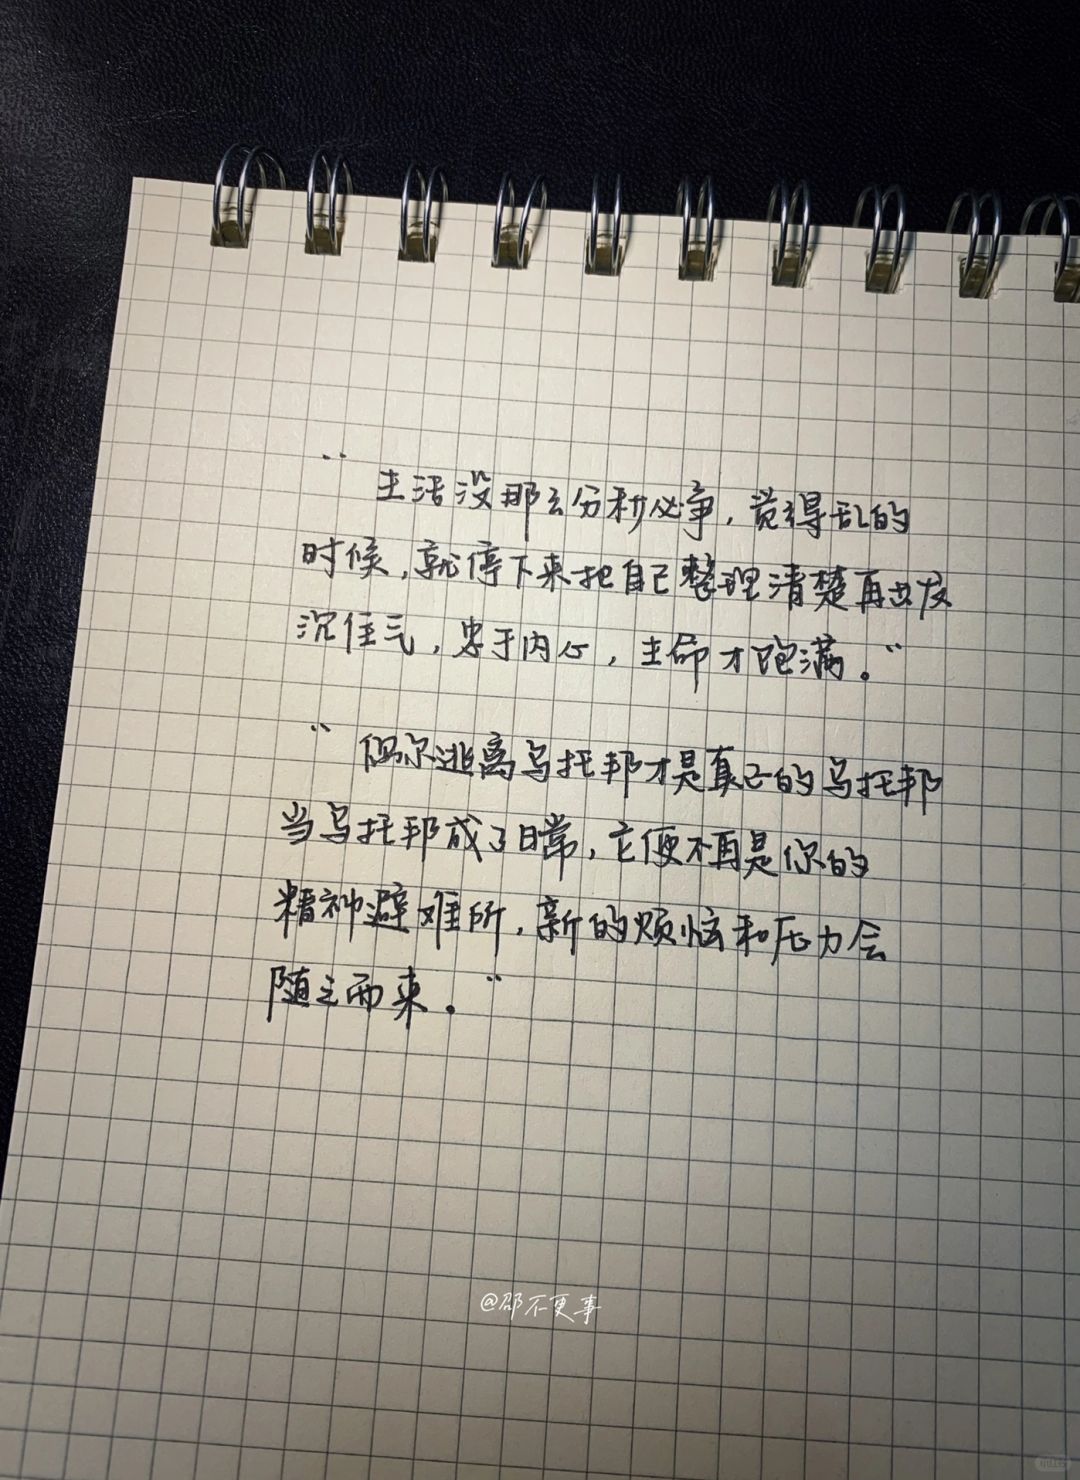 “生活没那么分秒必争，觉得乱的
时候，就停下来把自己整理清楚再出发
沉住气，忠于内心，生命才饱满。”
“偶尔逃离乌托邦才是真正的乌托邦
当乌托邦成了日常，它便不再是你的
精神避难所，新的烦恼和压力会
随之而来。”
@邵不更事
小红书